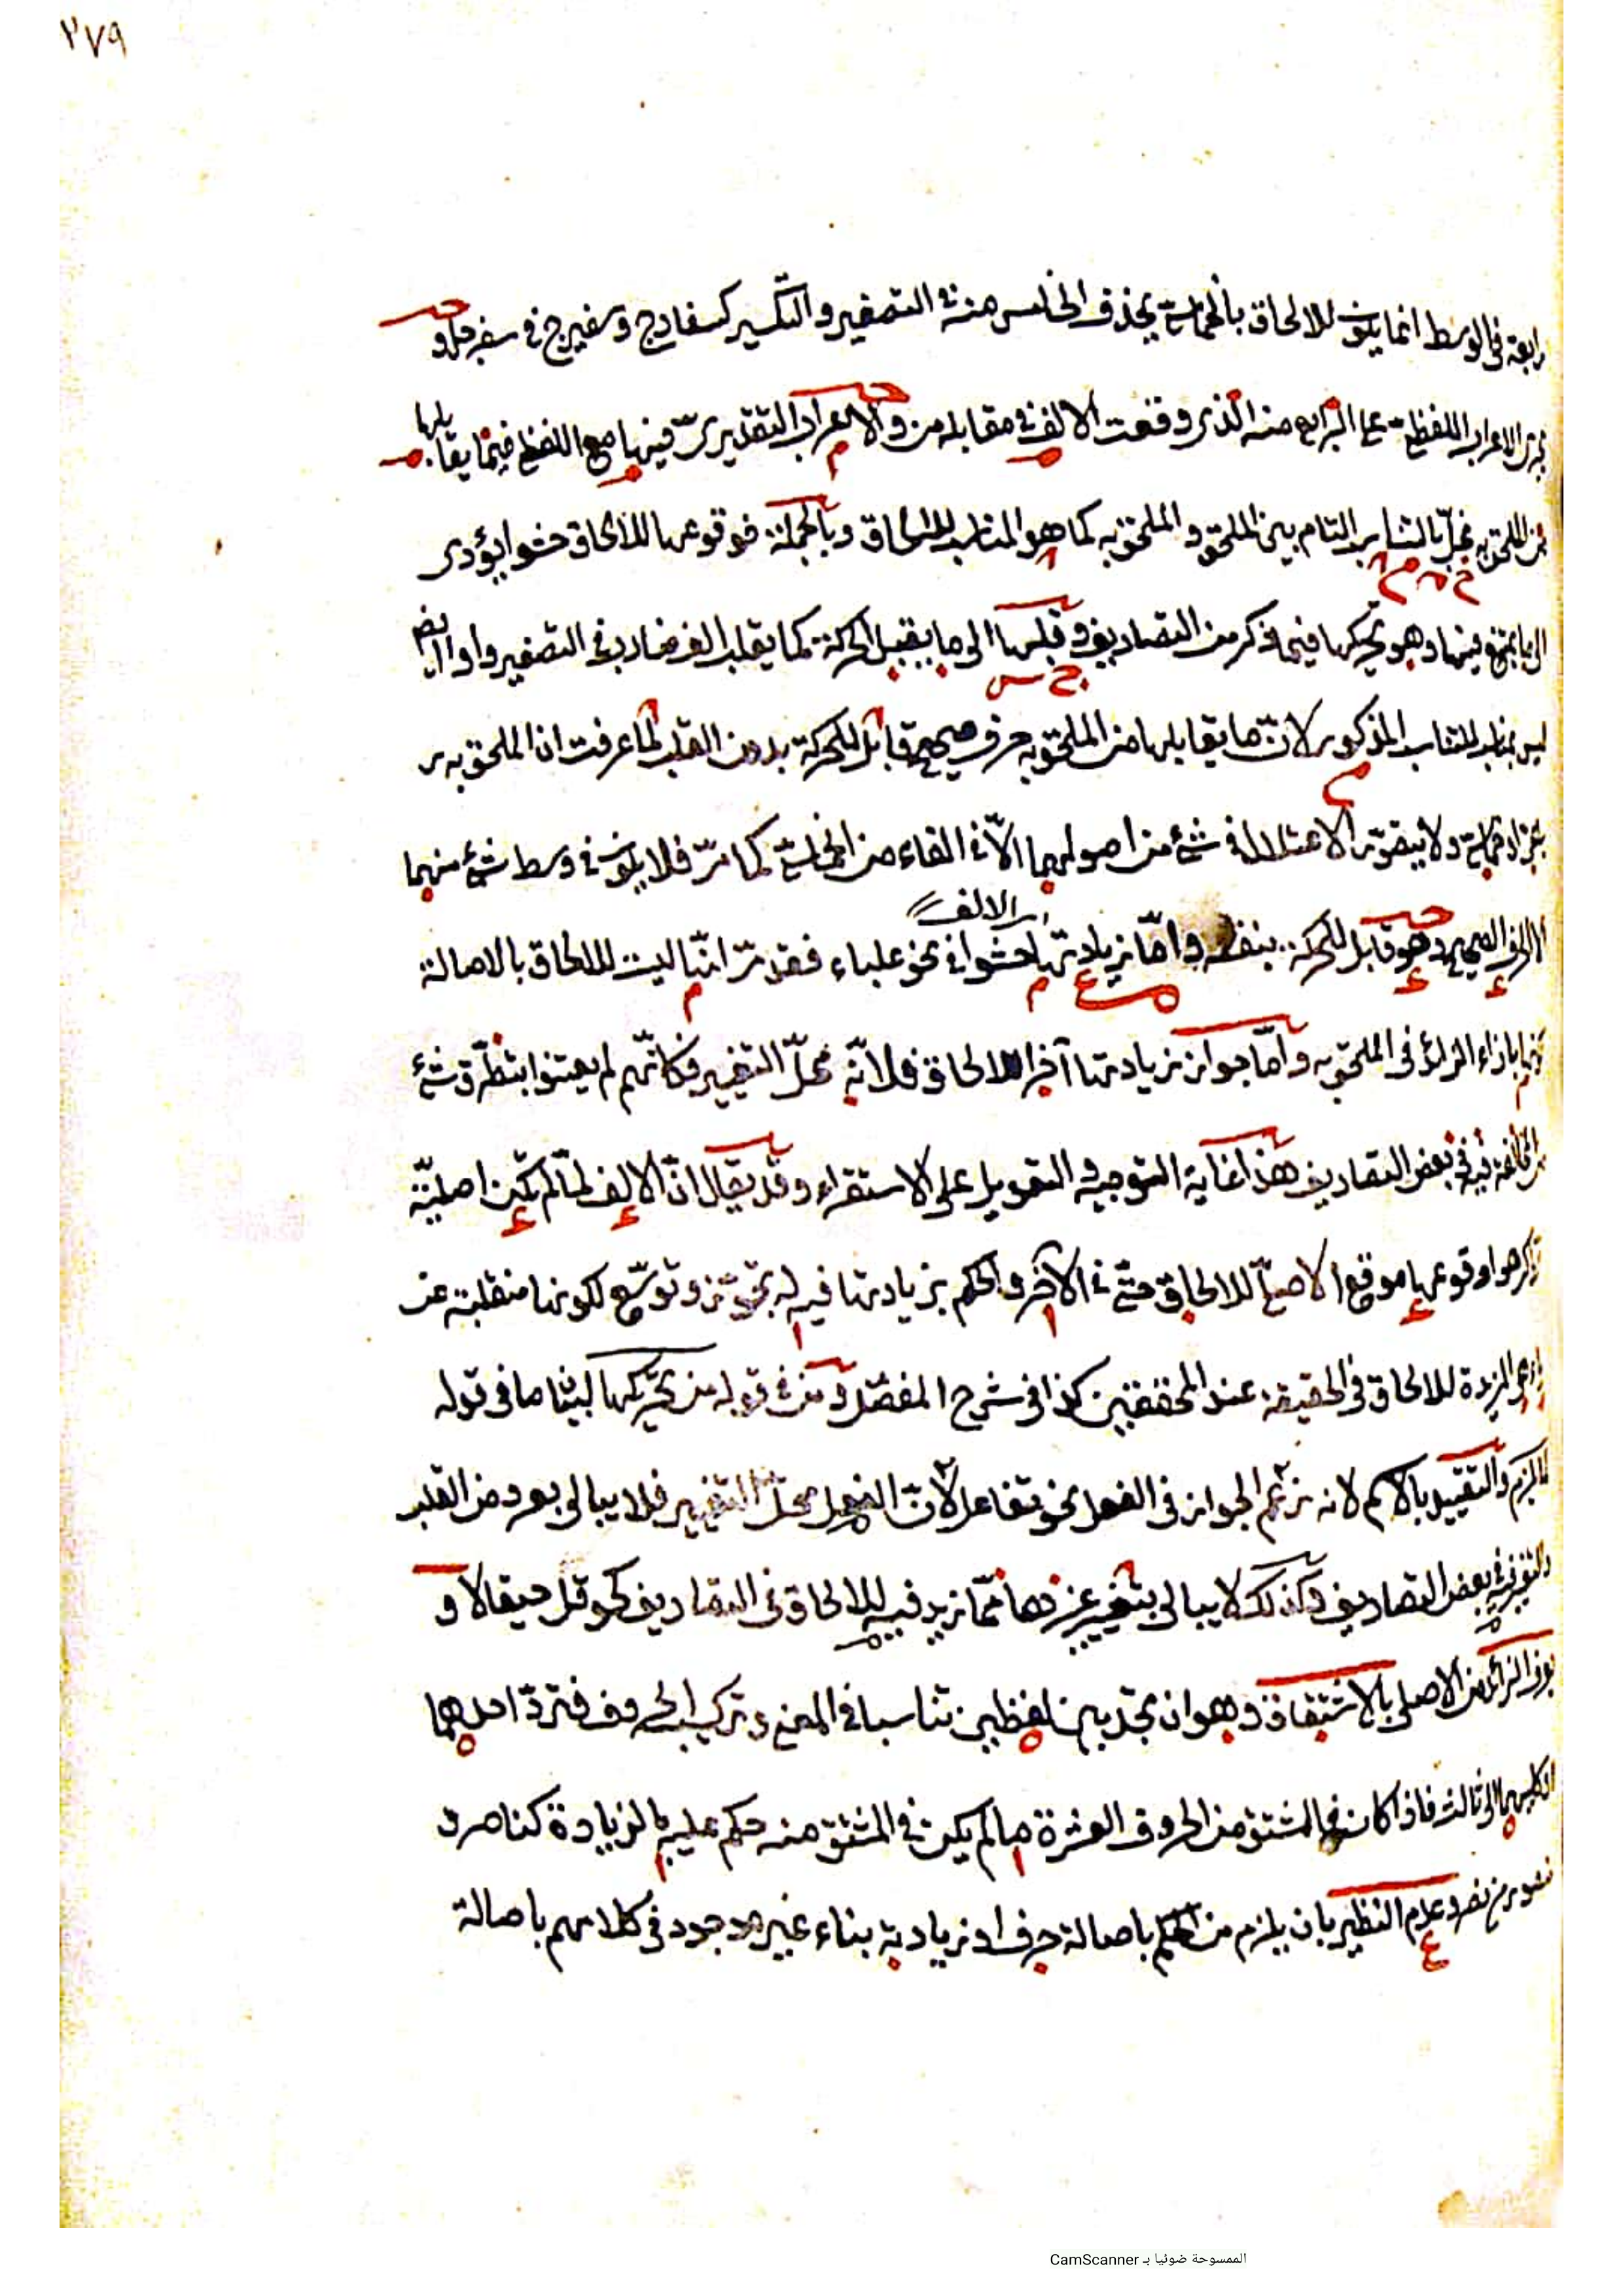 ٢٧٩
رابعة في الوسط انما يكون للالحاق بالخماسي يحذف الخامس منه في التصغير والتكسير كسفارج وسفيرج في سفرجل و
الاعراب اللفظي على الرابع منه الذي وقعت الالف في مقابله من والاعراب التقديريّ فيها مع اللفظ فيما يقابلها
من الملحق به يخلّ بالتناسب التام بين الملحق والملحق به كما هو المناسب للالحاق وبالجملة فوقوعها للالحاق حشوا يؤدى
الى ما يمتنع فيها وهو تحركها فيما ذكر من التصاريف وقلبها الى ما يقبل الحركة كما يقلب الف ضارب في التصغير واوا ايضا
ليس بمناسب للتناسب المذكور لانّ ما يقابلها من الملحق به حرف صحيح قابل للحركة بدون القلب لما عرفت ان الملحق به
ولا يتصوّر الاعتلال في شئ من اصولهما الّا في الفاء من الخماسي كما مرّ فلا يكون في وسط شئ منهما
الا الحرف الصحيح وهو قابل للحركة بنفسه وامّا زيادتها حشوا في نحو علباء فقد مرّ انّها ليست للالحاق بالاصالة
اي الالف
بازاء الزائد في الملحق به وامّا جواز زيادتها آخرا للالحاق فلانّه محلّ التغيير فكانّهم لم يعتنوا بتطرّق شئ
فيه في بعض التصاريف هذا غاية التوجيه والتعويل على الاستقراء وقد يقال انّ الالف لمّا لم يكن اصليّة
كرهوا وقوعها موقع الاصليّ للالحاق حتّى في الآخر والحكم بزيادتها فيه له تجوّز وتوسّع لكونها منقلبة عن
المزيدة للالحاق في الحقيقة عند المحققين كذا في شرح المفصّل ومن في قوله من تحريكها لبيان ما في قوله
لما يلزم والتقييد بالاسم لانه زعم الجواز في الفعل نحو تغافل لانّ الفعل محلّ التغيير فلا يبالى بعروض القلب
والتغيير في بعض التصاريف وكذلك لا يبالى بتغيير غيرها ممّا زيد فيه للالحاق في التصاريف كحوقل حيقالا و
يعرف الزائد من الاصلي بالاشتقاق وهو ان تجد بين لفظين تناسبا في المعنى وتركيب الحروف فتردّ احدهما
او كليهما الى ثالث فاذا كان في المشتق من الحروف العشرة ما لم يكن في المشتق منه حكم عليه بالزيادة كناصر و
منصور من نصر وعدم النظير بان يلزم من الحكم باصالة حرف او زيادته بناء غير موجود في كلامهم باصالة
الممسوحة ضوئيا بـ CamScanner